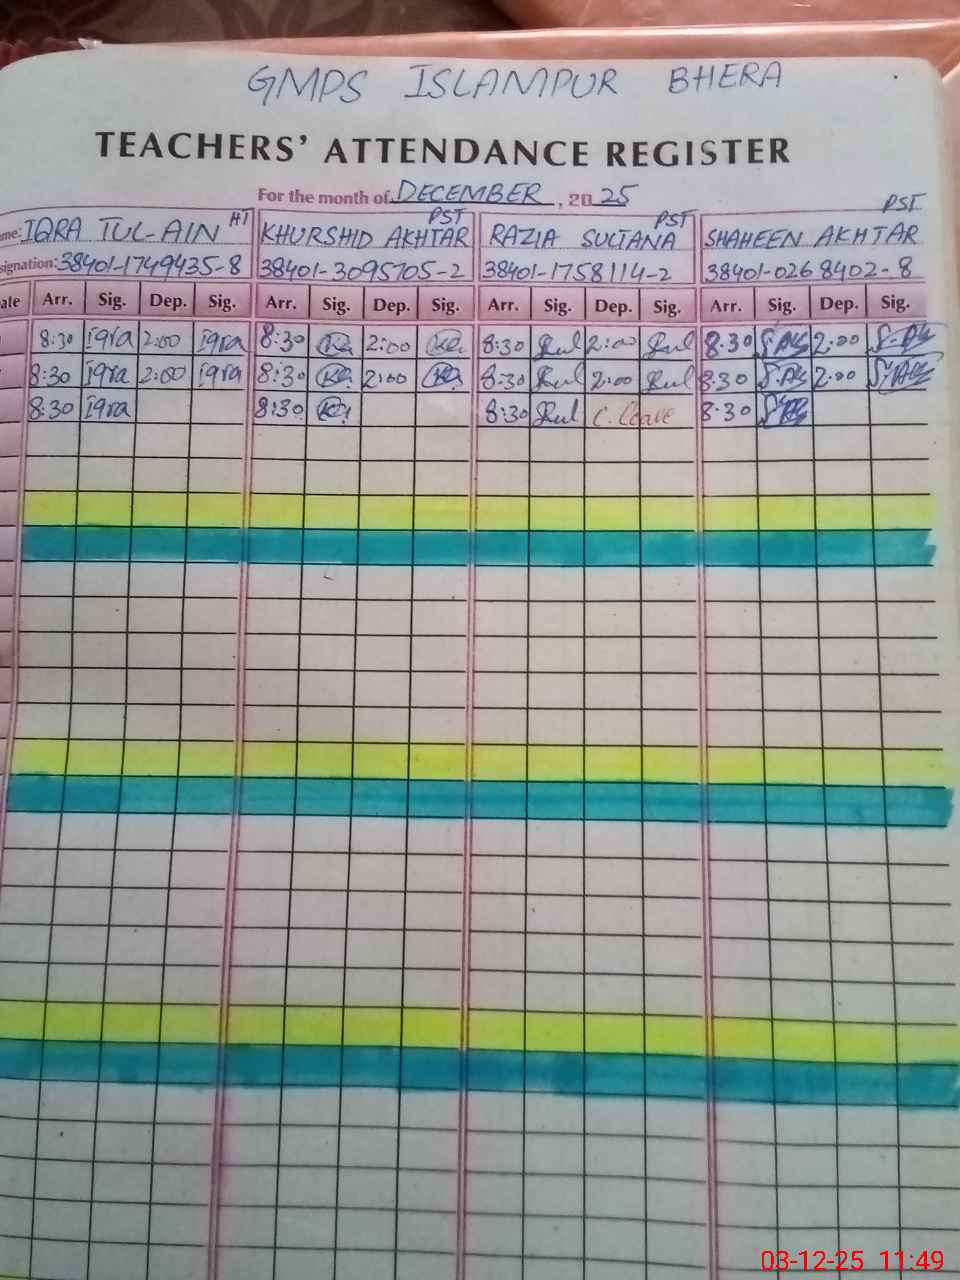 GMPS ISLAMPUR BHERA
TEACHERS' ATTENDANCE REGISTER
For the month of DECEMBER, 2025
me: IQRA TUL-AIN HT KHURSHID AKHTAR PST RAZIA SULTANA PST SHAHEEN AKHTAR PST
signation: 38401-1749435-8 38401-3095705-2 38401-1758114-2 38401-0268402-8
ate Arr. Sig. Dep. Sig. Arr. Sig. Dep. Sig. Arr. Sig. Dep. Sig. Arr. Sig. Dep. Sig.
8:30 iqra 2:00 iqra 8:30 2:00 8:30 2:00 8:30 2:00
8:30 iqra 2:00 iqra 8:30 2:00 8:30 2:00 8:30 2:00
8:30 iqra 8:30 8:30 C. leave 8:30
03-12-25 11:49